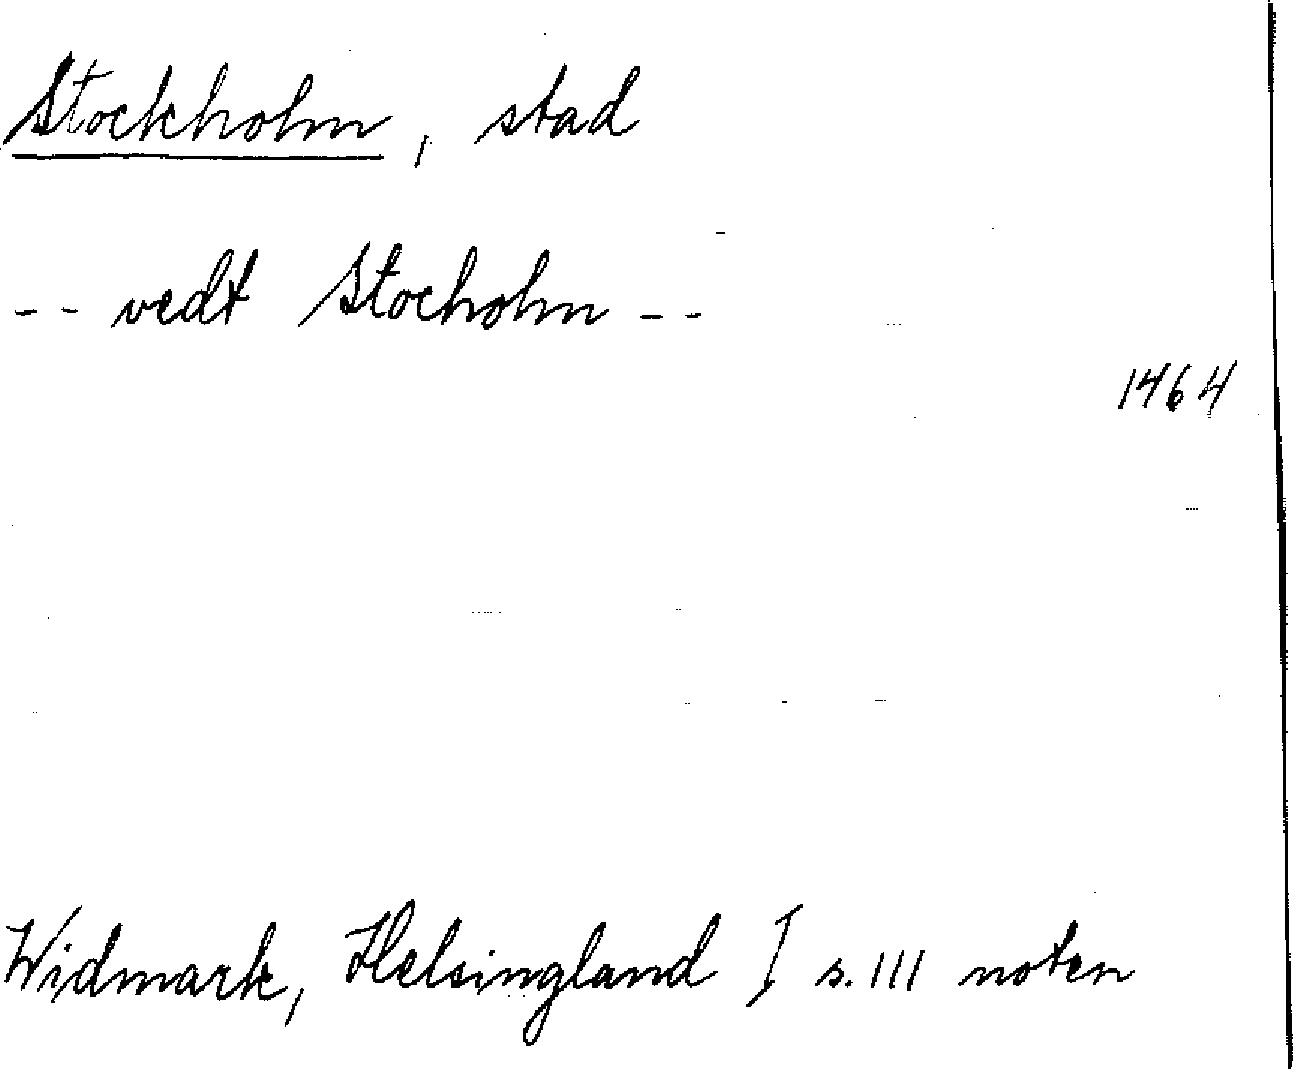 Stockholm, stad
-- vedt Stocholm --
1464
Widmark, Helsingland I s. 111 noten